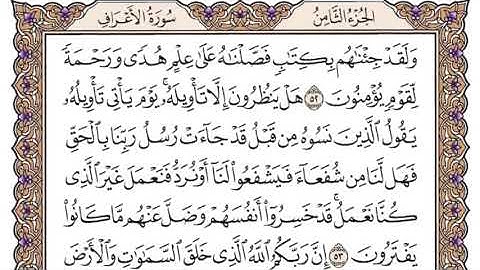 سُورَةُ الْأَعْرَافِ الجُزْءُ الثَّامِنُ
وَلَقَدْ جِئْنَٰهُم بِكِتَٰبٍ فَصَّلْنَٰهُ عَلَىٰ عِلْمٍ هُدًى وَرَحْمَةً
لِّقَوْمٍ يُؤْمِنُونَ ٥٢ هَلْ يَنظُرُونَ إِلَّا تَأْوِيلَهُۥ ۚ يَوْمَ يَأْتِى تَأْوِيلُهُۥ
يَقُولُ ٱلَّذِينَ نَسُوهُ مِن قَبْلُ قَدْ جَآءَتْ رُسُلُ رَبِّنَا بِٱلْحَقِّ
فَهَل لَّنَا مِن شُفَعَآءَ فَيَشْفَعُوا۟ لَنَآ أَوْ نُرَدُّ فَنَعْمَلَ غَيْرَ ٱلَّذِى
كُنَّا نَعْمَلُ ۚ قَدْ خَسِرُوٓا۟ أَنفُسَهُمْ وَضَلَّ عَنْهُم مَّا كَانُوا۟
يَفْتَرُونَ ٥٣ إِنَّ رَبَّكُمُ ٱللَّهُ ٱلَّذِى خَلَقَ ٱلسَّمَٰوَٰتِ وَٱلْأَرْضَ